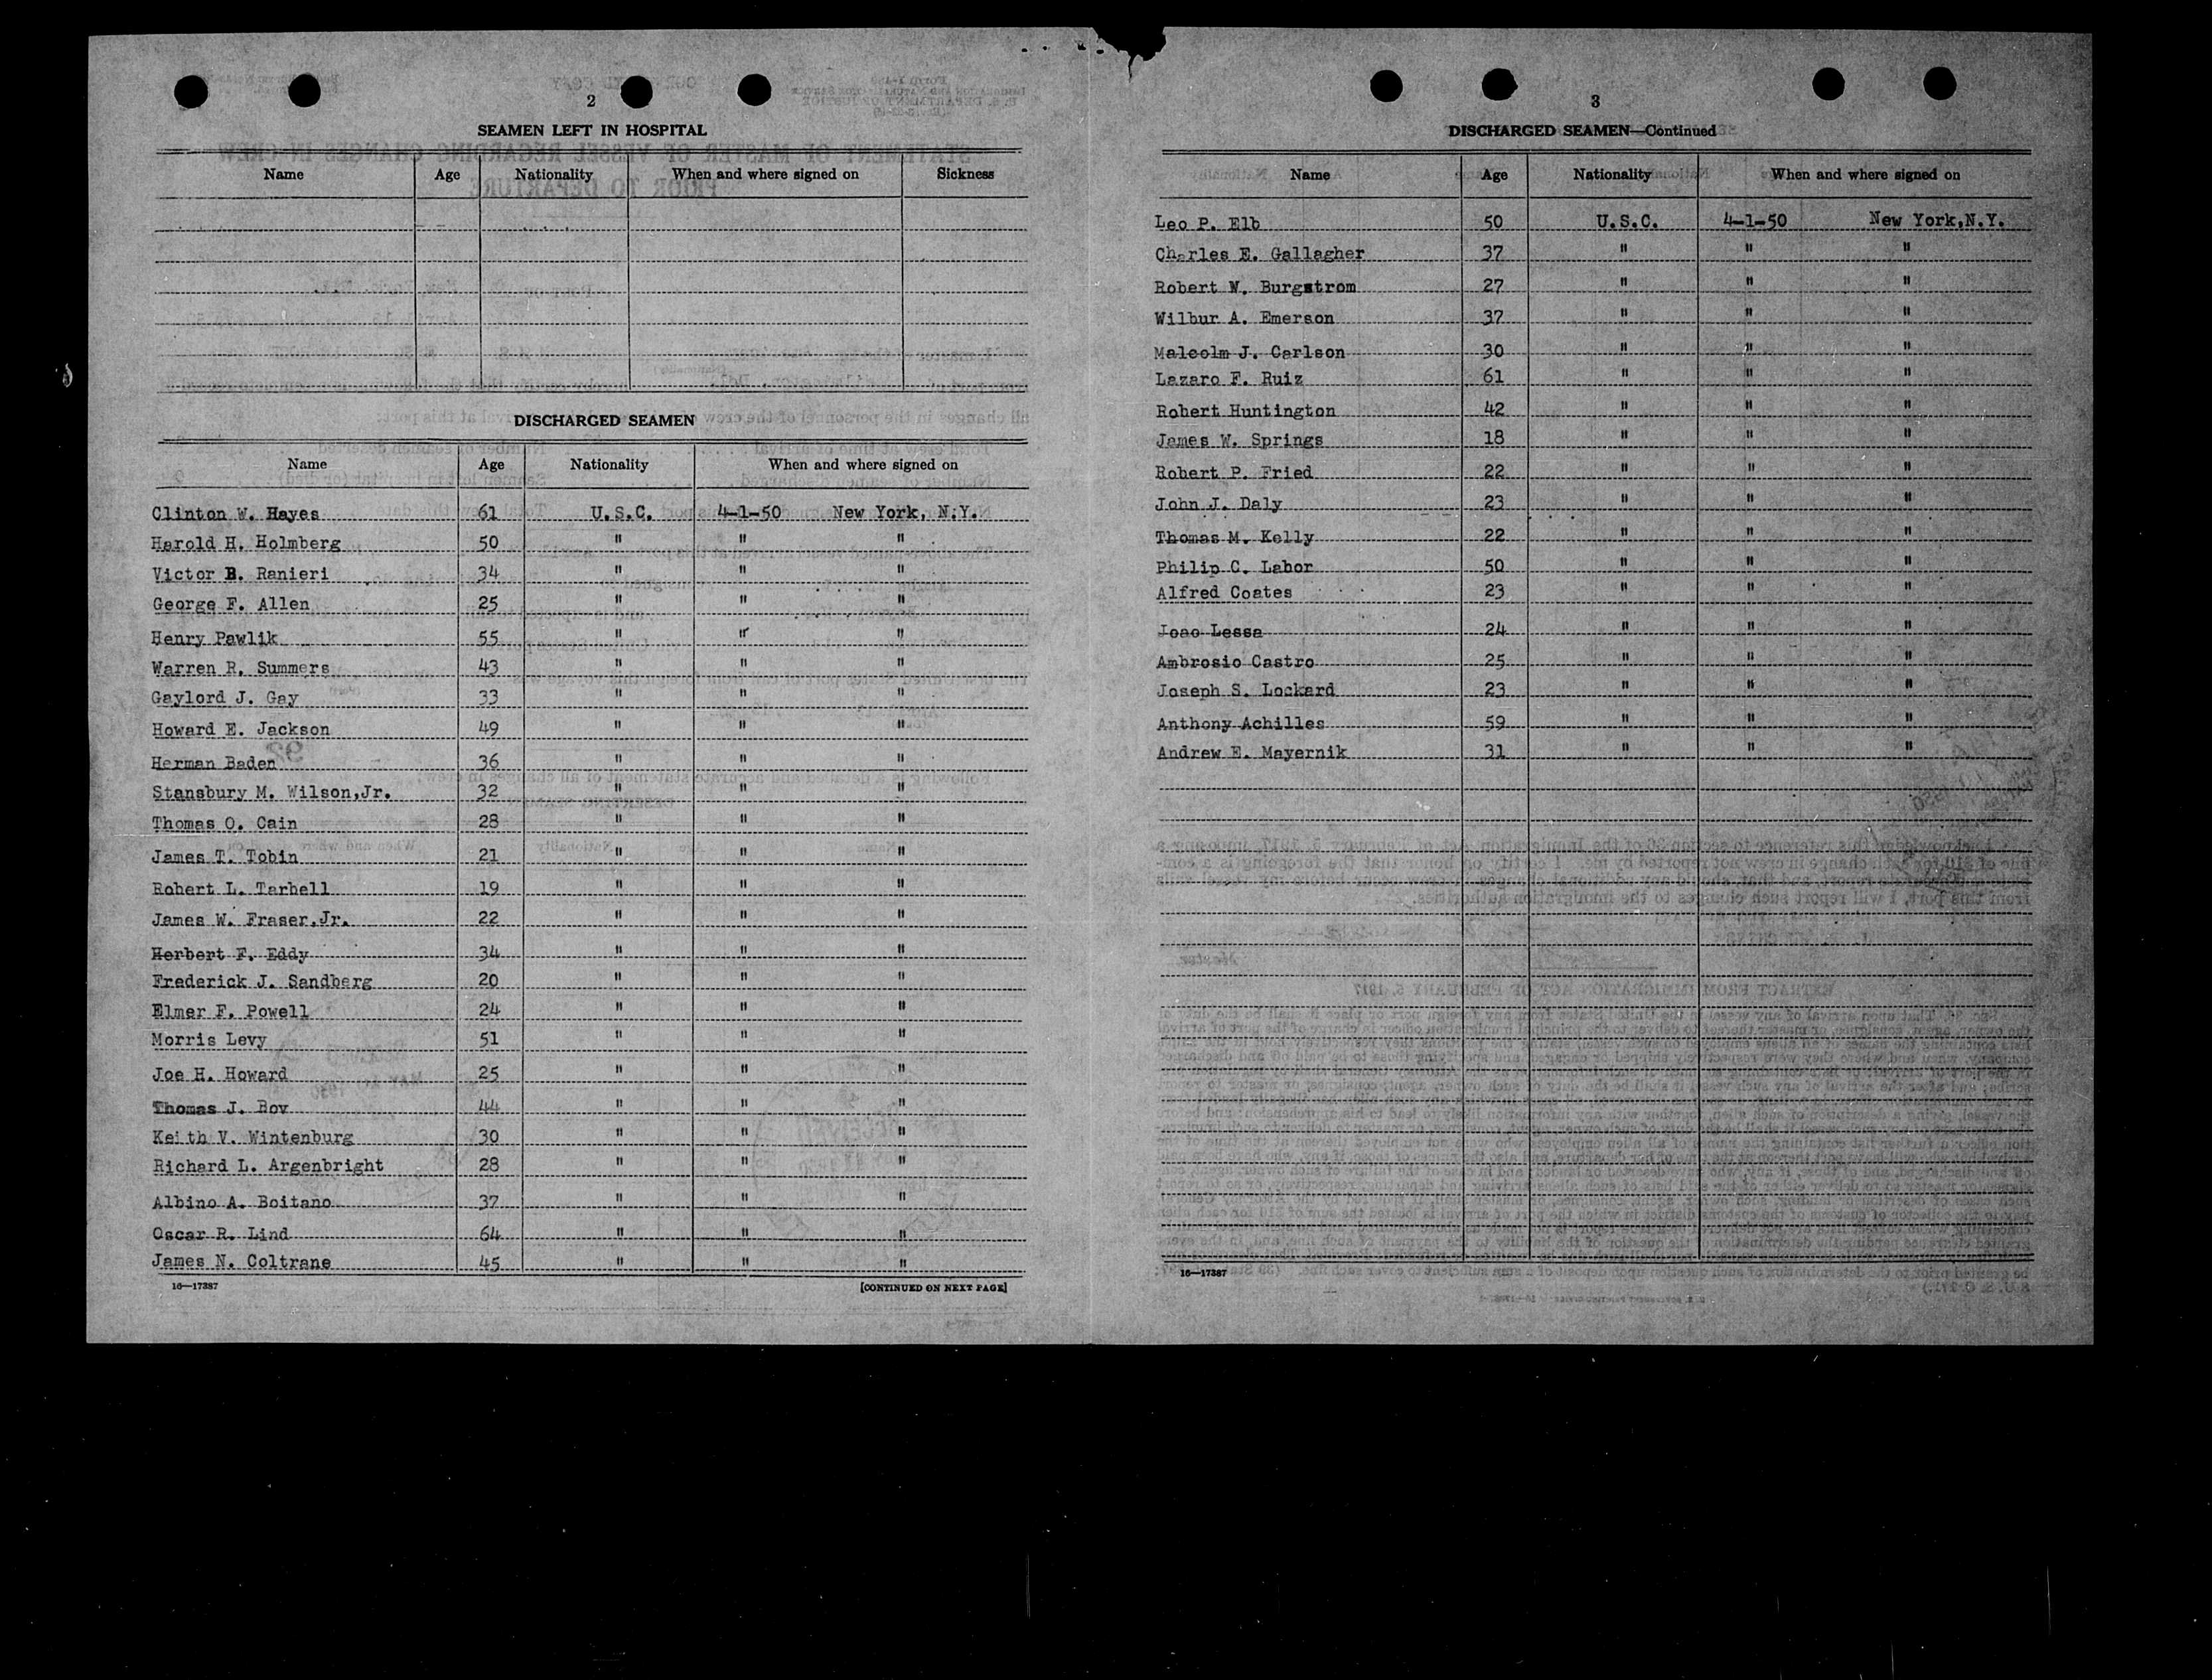 2
SEAMEN LEFT IN HOSPITAL
Name Age Nationality When and where signed on Sickness
DISCHARGED SEAMEN
Name Age Nationality When and where signed on
Clinton W. Hayes 61 U.S.C. 4-1-50 New York, N.Y.
Harold H. Holmberg 50 " " "
Victor B. Ranieri 34 " " "
George F. Allen 25 " " "
Henry Pawlik 55 " " "
Warren R. Summers 43 " " "
Gaylord J. Gay 33 " " "
Howard E. Jackson 49 " " "
Herman Baden 36 " " "
Stansbury M. Wilson,Jr. 32 " " "
Thomas O. Cain 28 " " "
James T. Tobin 21 " " "
Robert L. Tarbell 19 " " "
James W. Fraser,Jr. 22 " " "
Herbert F. Eddy 34 " " "
Frederick J. Sandberg 20 " " "
Elmer F. Powell 24 " " "
Morris Levy 51 " " "
Joe H. Howard 25 " " "
Thomas J. Roy 44 " " "
Keith V. Wintenburg 30 " " "
Richard L. Argenbright 28 " " "
Albino A. Boitano 37 " " "
Oscar R. Lind 64 " " "
James N. Coltrane 45 " " "
16—17387 [CONTINUED ON NEXT PAGE]
3
DISCHARGED SEAMEN—Continued
Name Age Nationality When and where signed on
Leo P. Elb 50 U.S.C. 4-1-50 New York,N.Y.
Charles E. Gallagher 37 " " "
Robert W. Burgstrom 27 " " "
Wilbur A. Emerson 37 " " "
Malcolm J. Carlson 30 " " "
Lazaro F. Ruiz 61 " " "
Robert Huntington 42 " " "
James W. Springs 18 " " "
Robert P. Fried 22 " " "
John J. Daly 23 " " "
Thomas M. Kelly 22 " " "
Philip C. Labor 50 " " "
Alfred Coates 23 " " "
Joao Lessa 24 " " "
Ambrosio Castro 25 " " "
Joseph S. Lockard 23 " " "
Anthony Achilles 59 " " "
Andrew E. Mayernik 31 " " "
16—17387